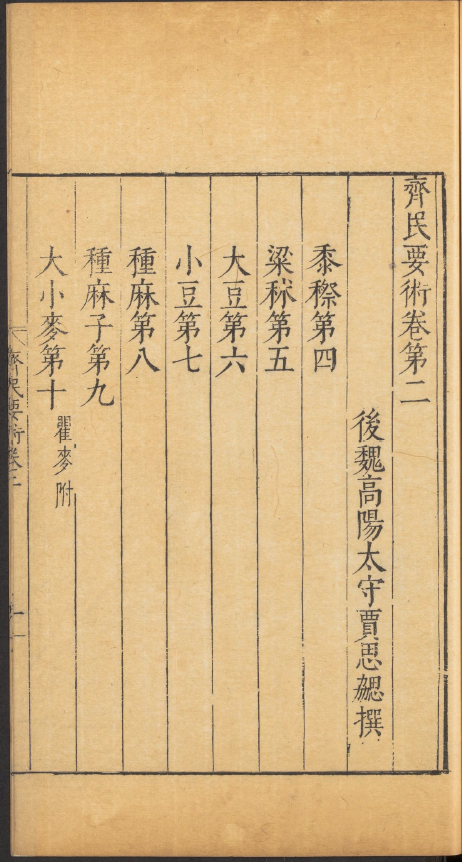 齊民要術卷第二
後魏高陽太守賈思勰撰
黍穄第四
粱秫第五
大豆第六
小豆第七
種麻第八
種麻子第九
大小麥第十 瞿麥附
齊民要術卷二